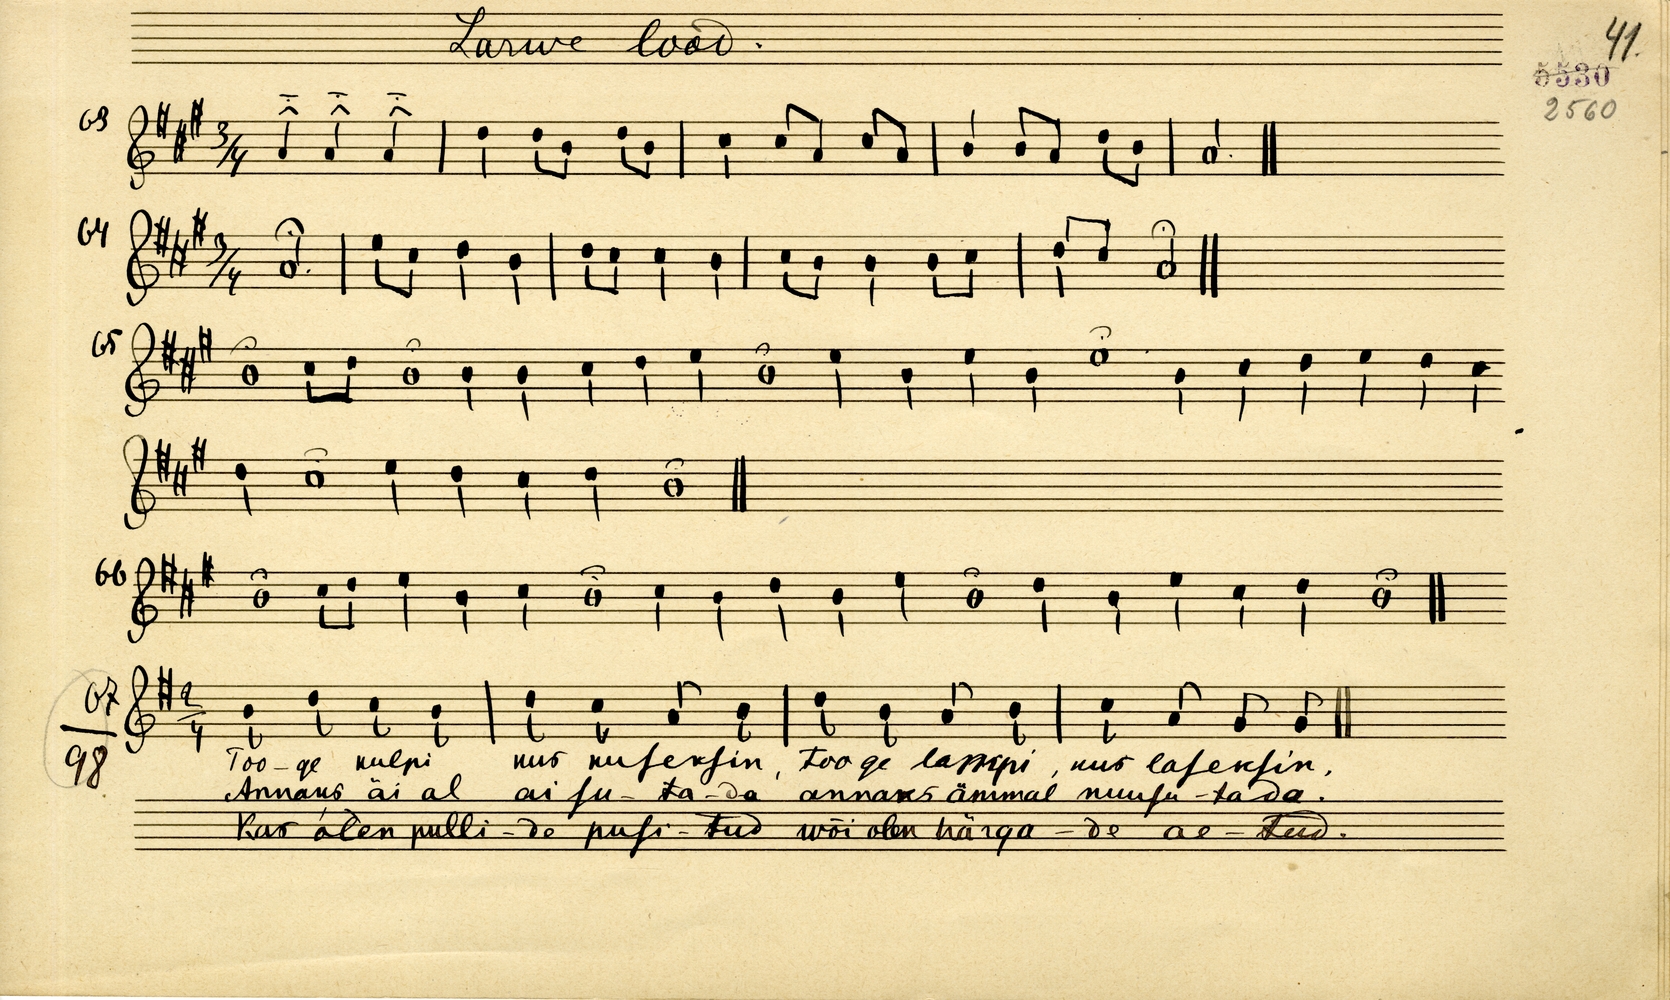 Sarwe lood.
41.
5530
2560
63
3/4
64
3/4
65
66
67
98
2/4
Too-ge kulpi kus kuseksin, too ge lassipi, kus laseksin,
Annaks äi al ai su-ta-da annaks ämmal nuusu-tada.
Kas olen pulli-de pusi-tud wõi olen härga-de ae-tud.